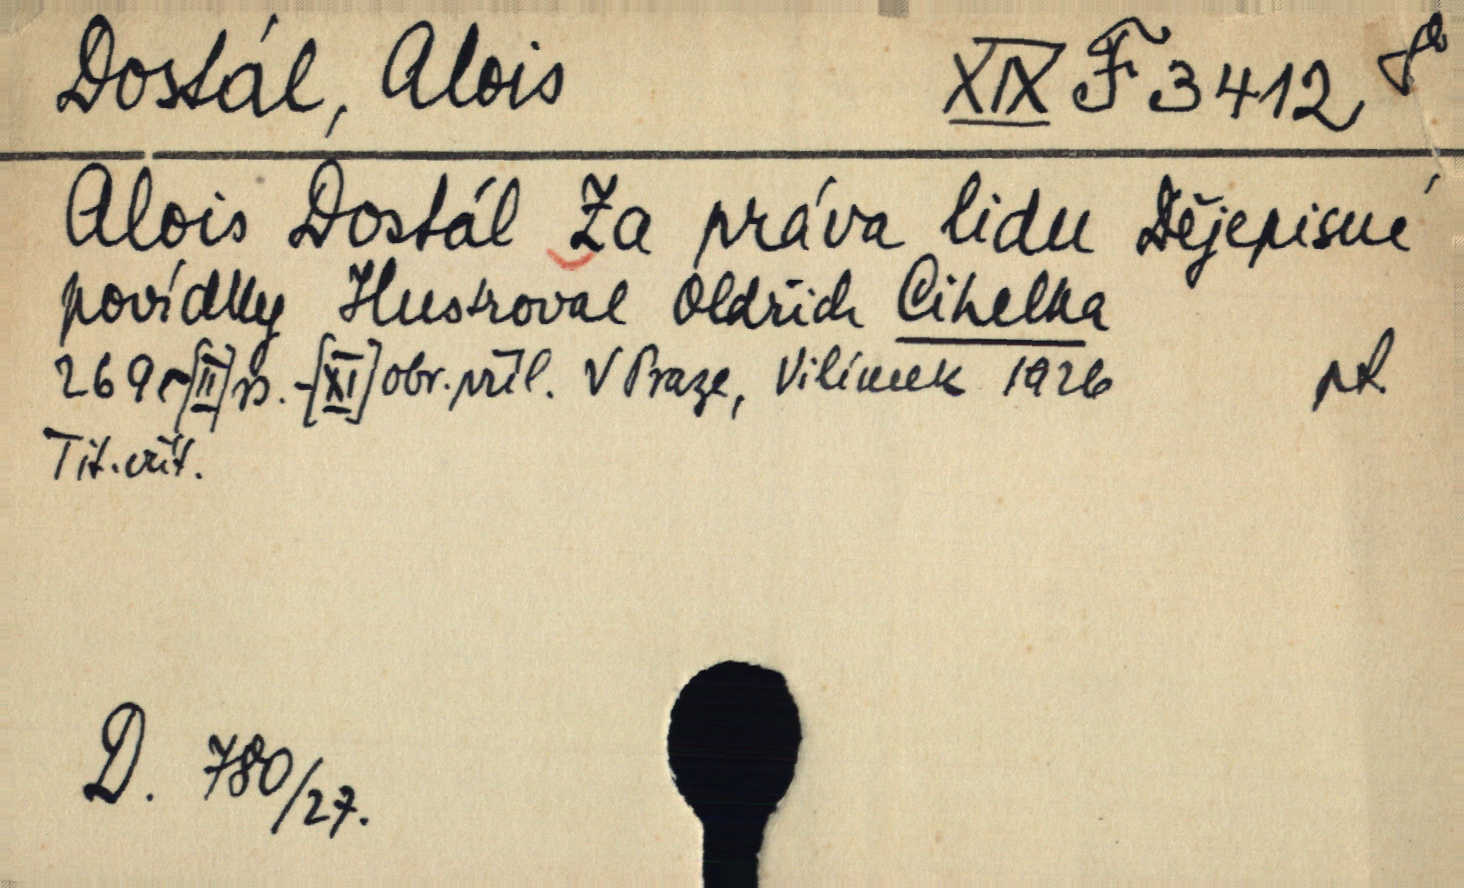 Dostál, Alois XIX F 3412
Alois Dostál Za práva lidu Dějepisné
povídky Illustroval Oldřich Cihelka
269-[II] s. -[XI] obr. příl. V Praze, Vilímek 1926 pk
Tit. víť.
D. 780/27.